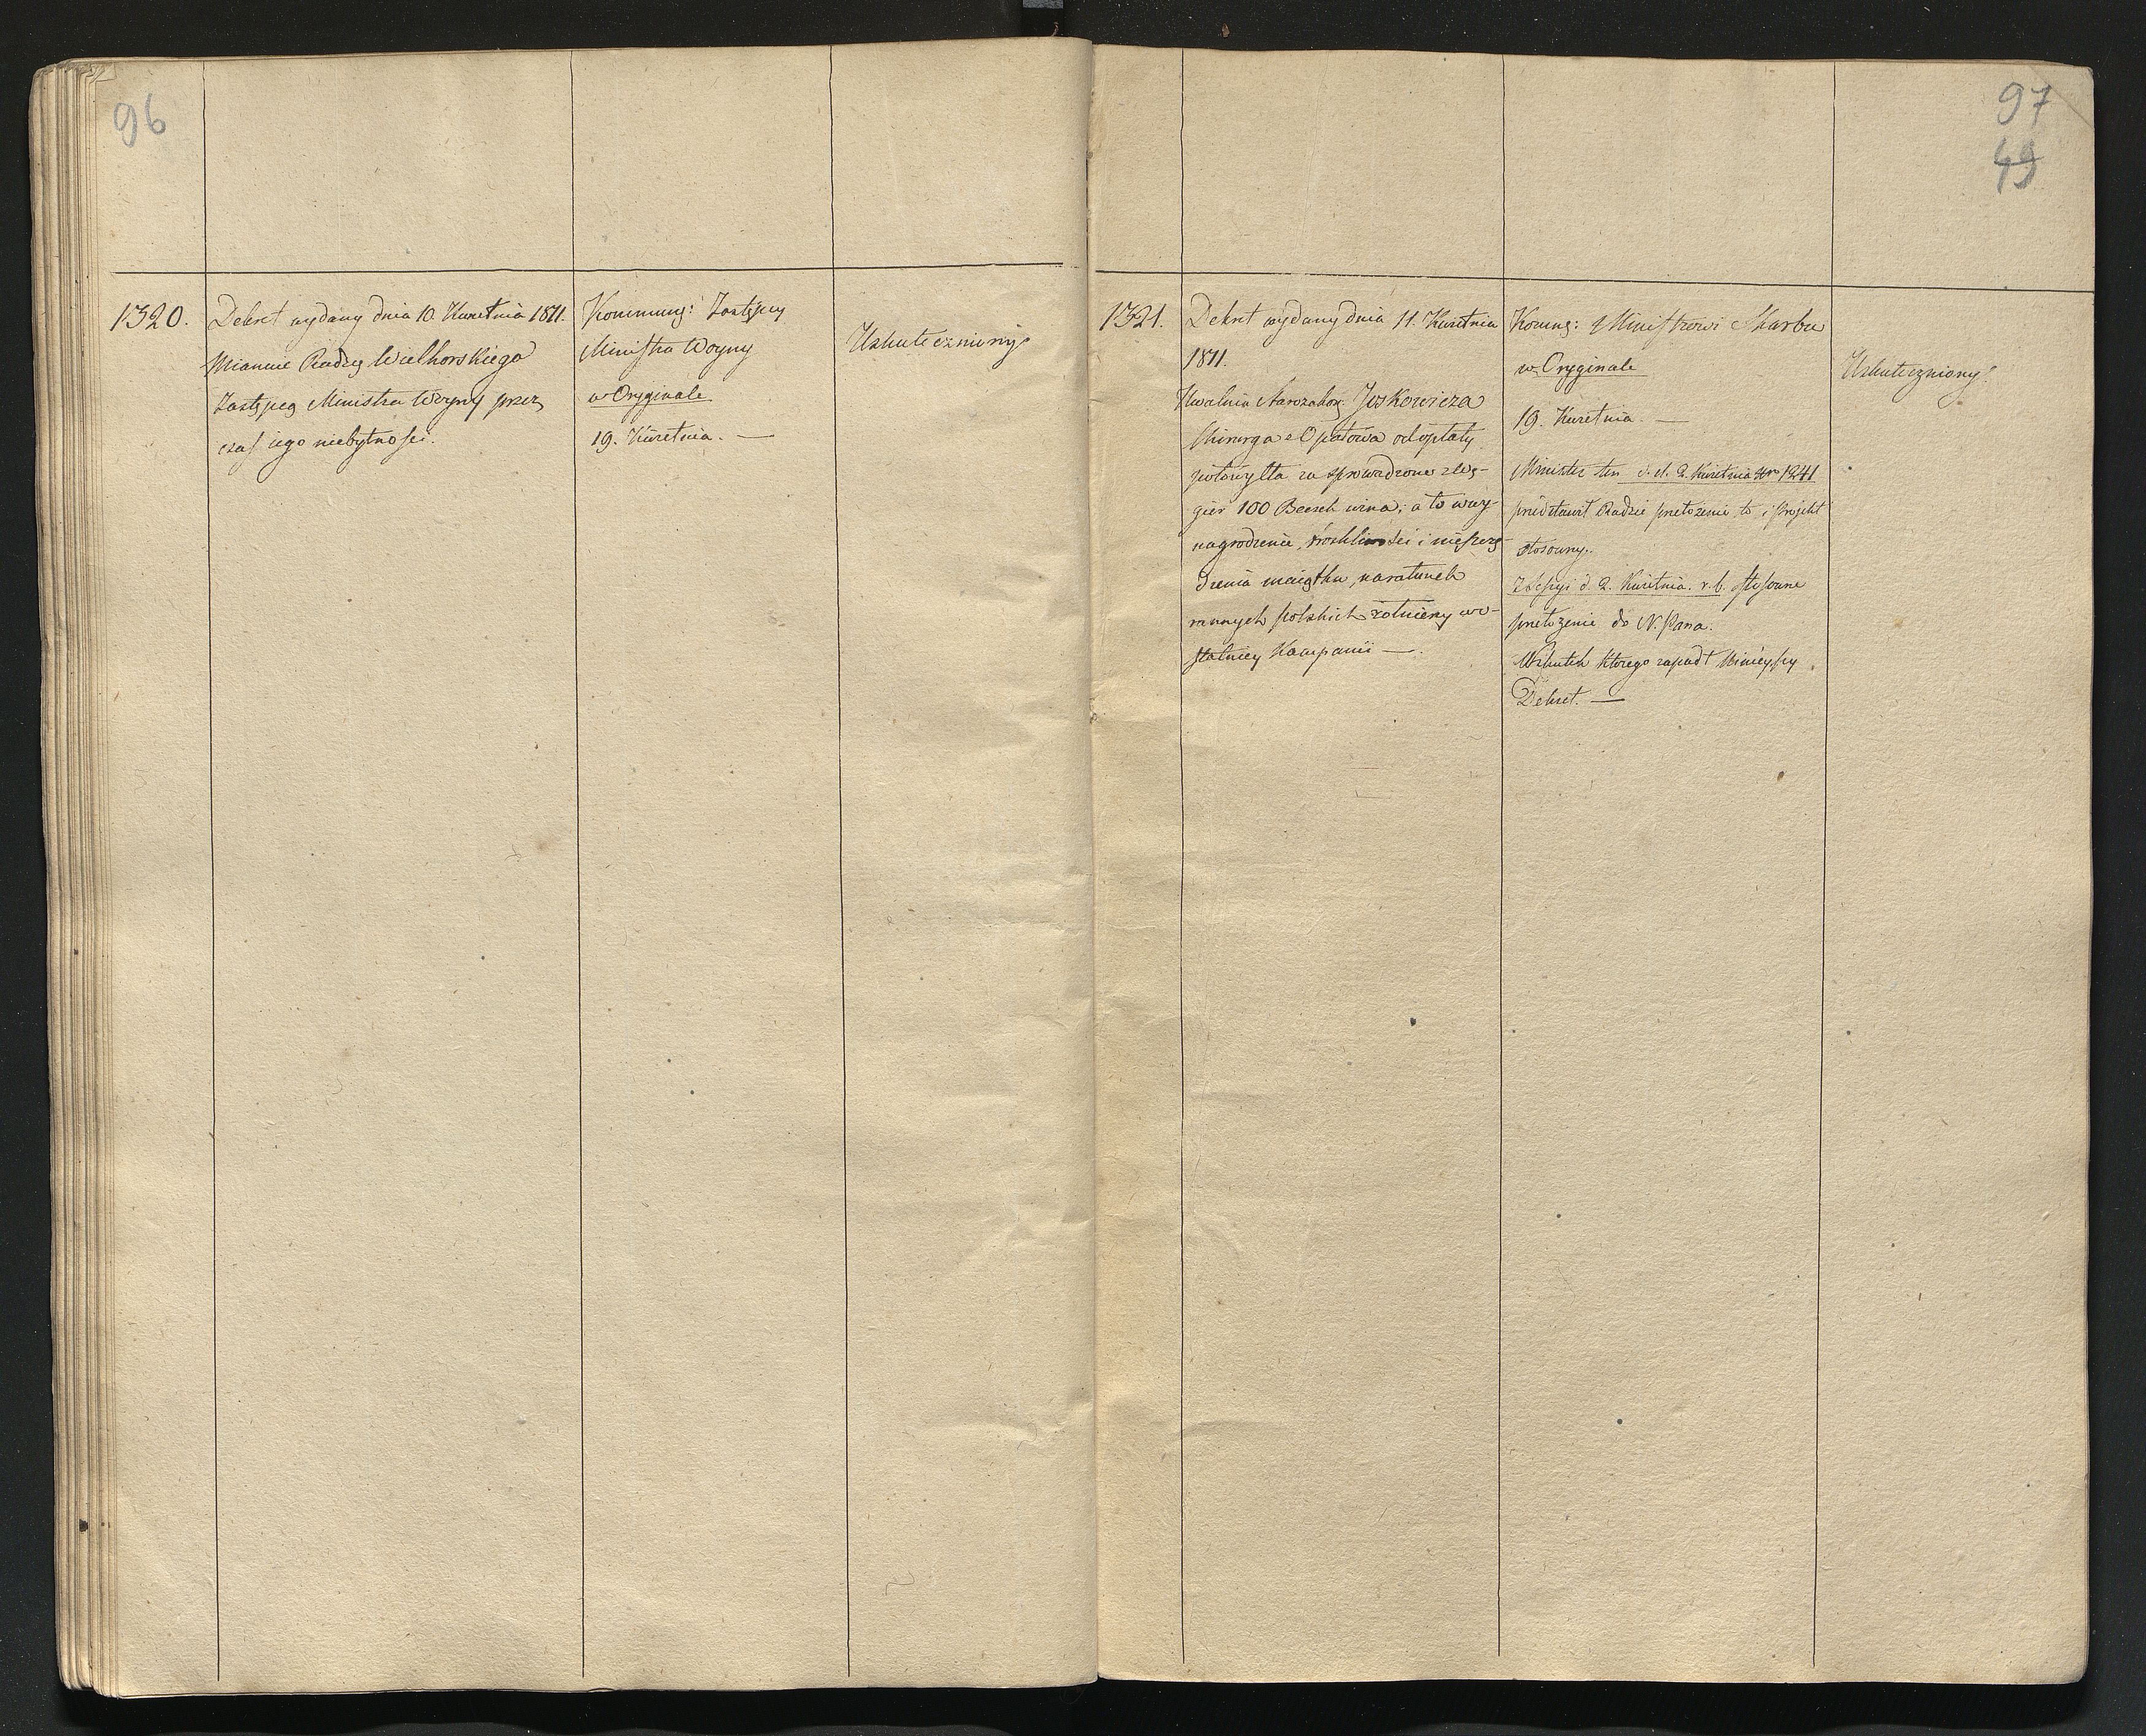 96
1320.
Dekret wydany dnia 10. Kwietnia 1811.
Mianuie Radzcę Wielhorskiego
Zastępcą Ministra Woyny przez
czas iego niebytności.
Kommunę: Zastępcy
Ministra Woyny
w Oryginale
19. Kwietnia. —
Uskuteczniony
97
49
1321.
Dekret wydany dnia 11. Kwietnia
1811.
Uwalnia Starozakon: Joskowicza
Chirurga z Opatowa od opłaty
póťowy cła za sprowadzone z Wę-
gier 100 Beczek wina; a to w wy-
nagrodzenie, troskliwości i nieszczę-
dzenia maiątku, na ratunek
rannych polskich żołnierzy w o-
statniey Kampanii —.
Komuę: Ministrowi Skarbu
w Oryginale
19. Kwietnia. —
Minister ten d. d. 2. Kwietnia Nro 1241
przedstawił Radzie przełożenie to i Projekt
stosowny.
Z Sessyi d. 2. Kwietnia. r. b. stosowne
przełożenie do N. Pana.
Wskutek którego zapadł Ninieyszy
Dekret. —
Uskuteczniony.